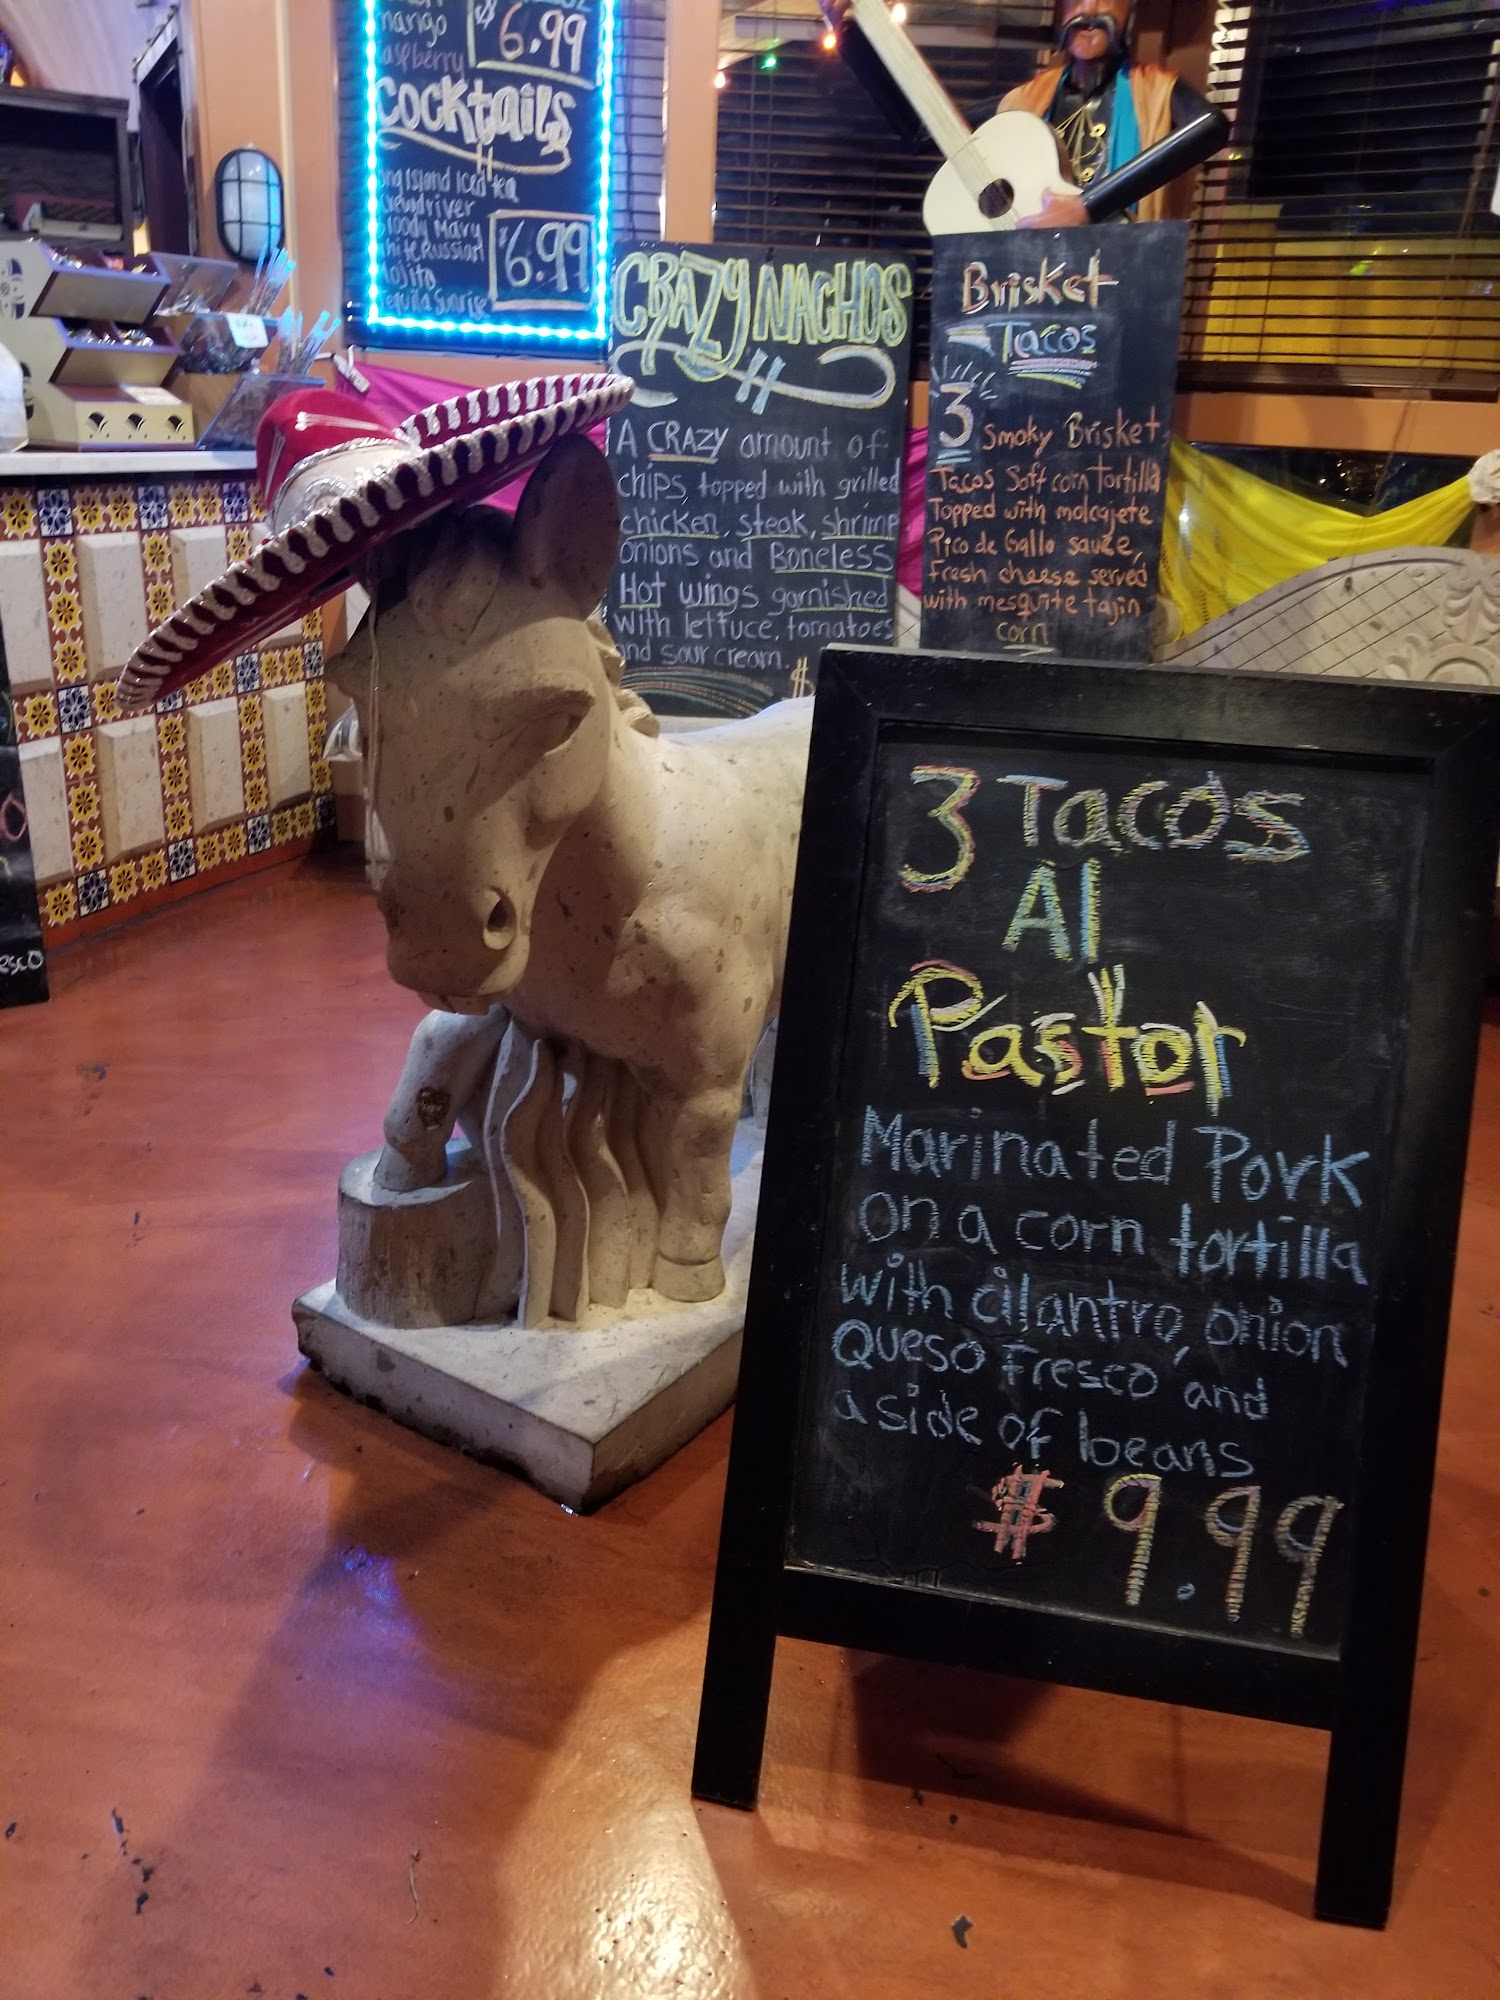 mango
$6.99
Cocktails
Island Iced tea
Mary
Russian
$6.99
Sunrise
CRAZY NACHOS
A CRAZY amount of
chips, topped with grilled
chicken, steak, shrimp,
onions and Boneless
Hot wings garnished
with lettuce, tomatoes
and sour cream.
$
Brisket
Tacos
3 Smoky Brisket
Tacos Soft corn tortilla
Topped with molcajete
Pico de Gallo sauce,
Fresh cheese served
with mesquite tajin
corn
3 Tacos
Al
Pastor
Marinated Pork
on a corn tortilla
with cilantro, onion
Queso Fresco, and
a side of beans
$9.99
esco